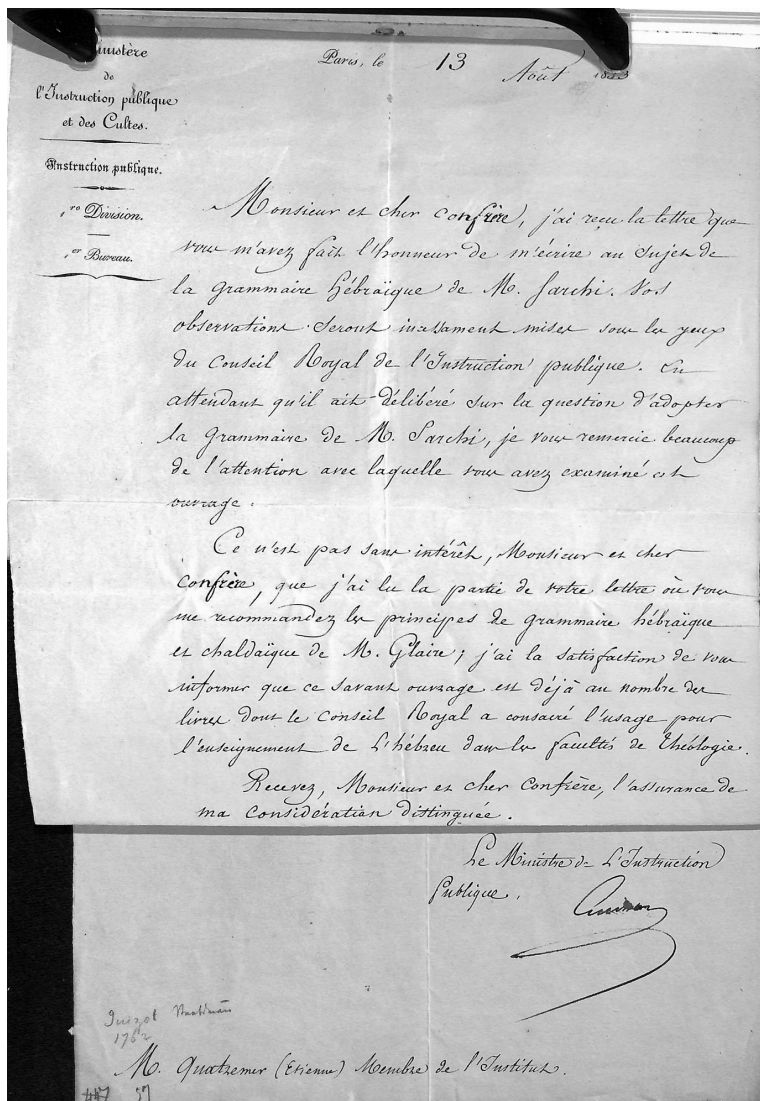 Ministère
de
l'Instruction publique
et des Cultes.
Instruction publique.
1re Division.
1er Bureau.
Paris, le 13 Août
Monsieur et cher confrère, j'ai reçu la lettre que
vous m'avez fait l'honneur de m'écrire au sujet de
la grammaire hébraïque de M. Sarchi. Vos
observations seront incessament mises sous les yeux
du Conseil Royal de l'Instruction publique. En
attendant qu'il ait délibéré sur la question d'adopter
la grammaire de M. Sarchi, je vous remercie beaucoup
de l'attention avec laquelle vous avez examiné cet
ouvrage.
Ce n'est pas sans intérêt, Monsieur et cher
confrère, que j'ai lu la partie de votre lettre où vous
me recommandez les principes de grammaire hébraïque
et chaldaïque de M. Glaire; j'ai la satisfaction de vous
informer que ce savant ouvrage est déjà au nombre des
livres dont le Conseil Royal a consacré l'usage pour
l'enseignement de L'hébreu dans les facultés de Théologie.
Recevez, Monsieur et cher Confrère, l'assurance de
ma considération distinguée.
Le Ministre de L'Instruction
Publique.
Guizot
1762
M. Quatremer (Etienne) Membre de l'Institut.
57